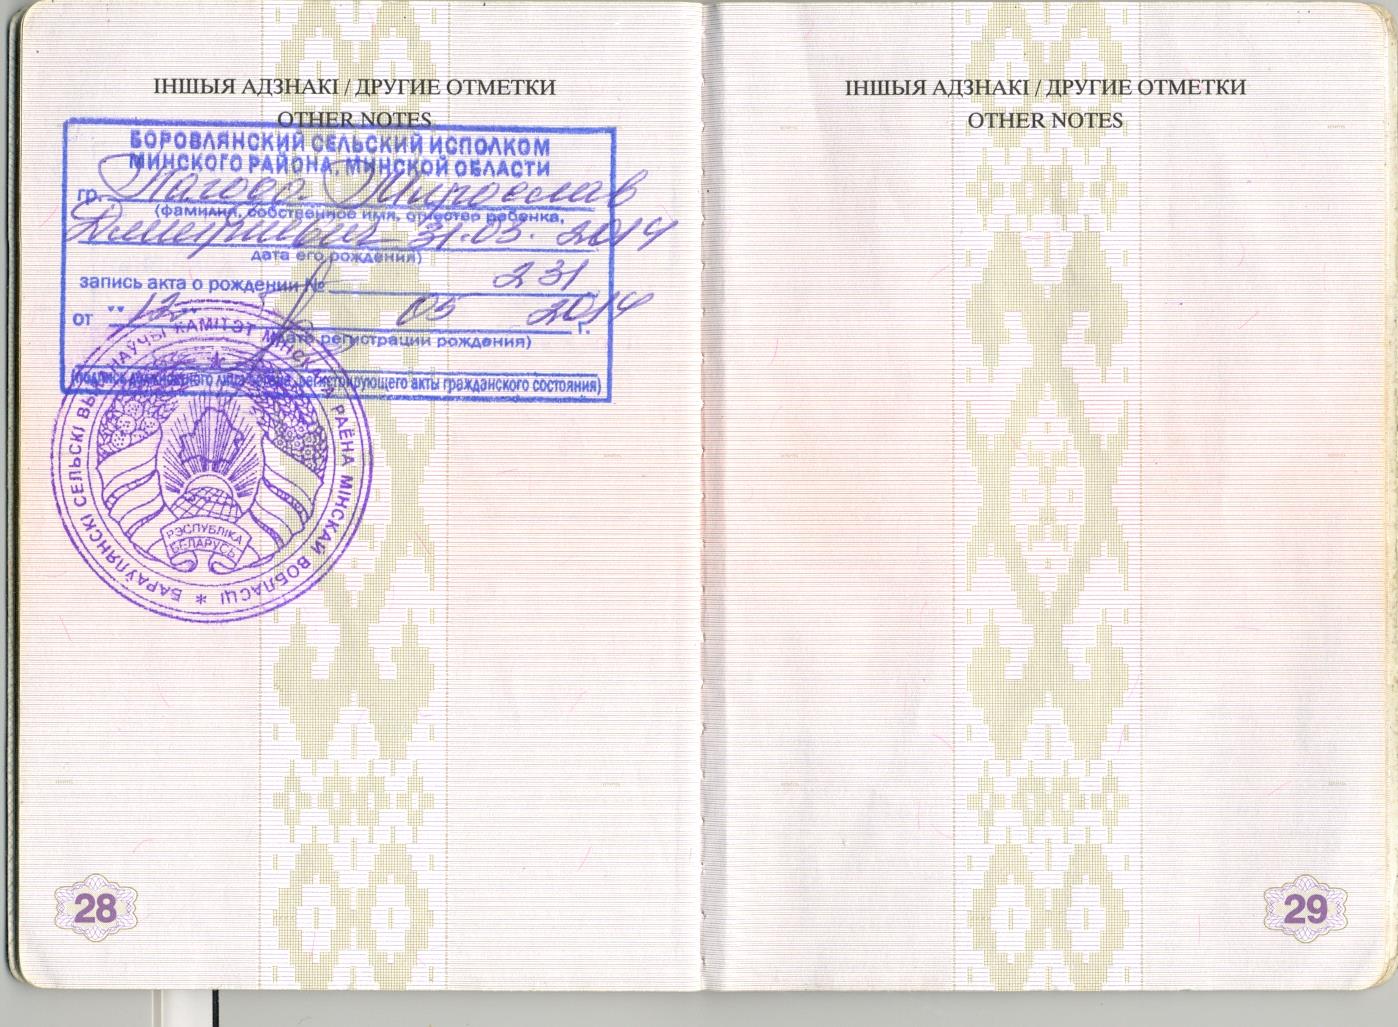 ІНШЫЯ АДЗНАКІ / ДРУГИЕ ОТМЕТКИ
OTHER NOTES
БОРОВЛЯНСКИЙ СЕЛЬСКИЙ ИСПОЛКОМ
МИНСКОГО РАЙОНА, МИНСКОЙ ОБЛАСТИ
гр. Мирослав
(фамилия, собственное имя, отчество ребенка,
Дмитриевич 31.03. 2014
дата его рождения)
запись акта о рождении № 231
от "12" 05 2014 г.
(дата регистрации рождения)
(подпись должностного лица органа, регистрирующего акты гражданского состояния)
БАРАЎЛЯНСКІ СЕЛЬСКІ ВЫКАНАЎЧЫ КАМІТЭТ МІНСКАГА РАЁНА МІНСКАЙ ВОБЛАСЦІ *
РЭСПУБЛІКА
БЕЛАРУСЬ
28
ІНШЫЯ АДЗНАКІ / ДРУГИЕ ОТМЕТКИ
OTHER NOTES
29